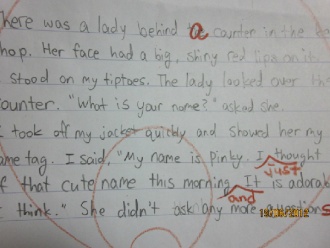 here was a lady behind a counter in the
hop. Her face had a big, shiny red lips on it.
stood on my tiptoes. The lady looked over the
counter. "What is your name?" asked she.
I took off my jacket quickly and showed her my
ame tag. I said, "My name is pinky. I thought
just
of that cute name this morning. It is adorab
and
think." She didn't ask any more questions